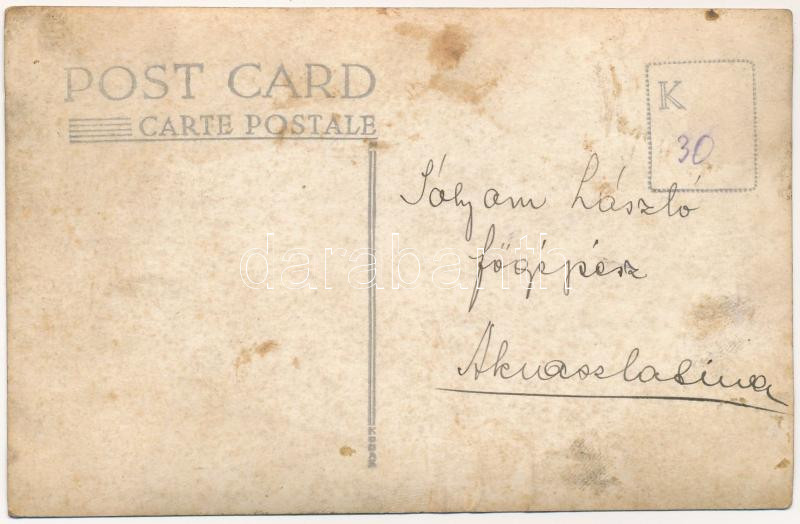 POST CARD
CARTE POSTALE
K
30
Sólyom László
főgépész
Aknaszlatina
KODAK
darabanth